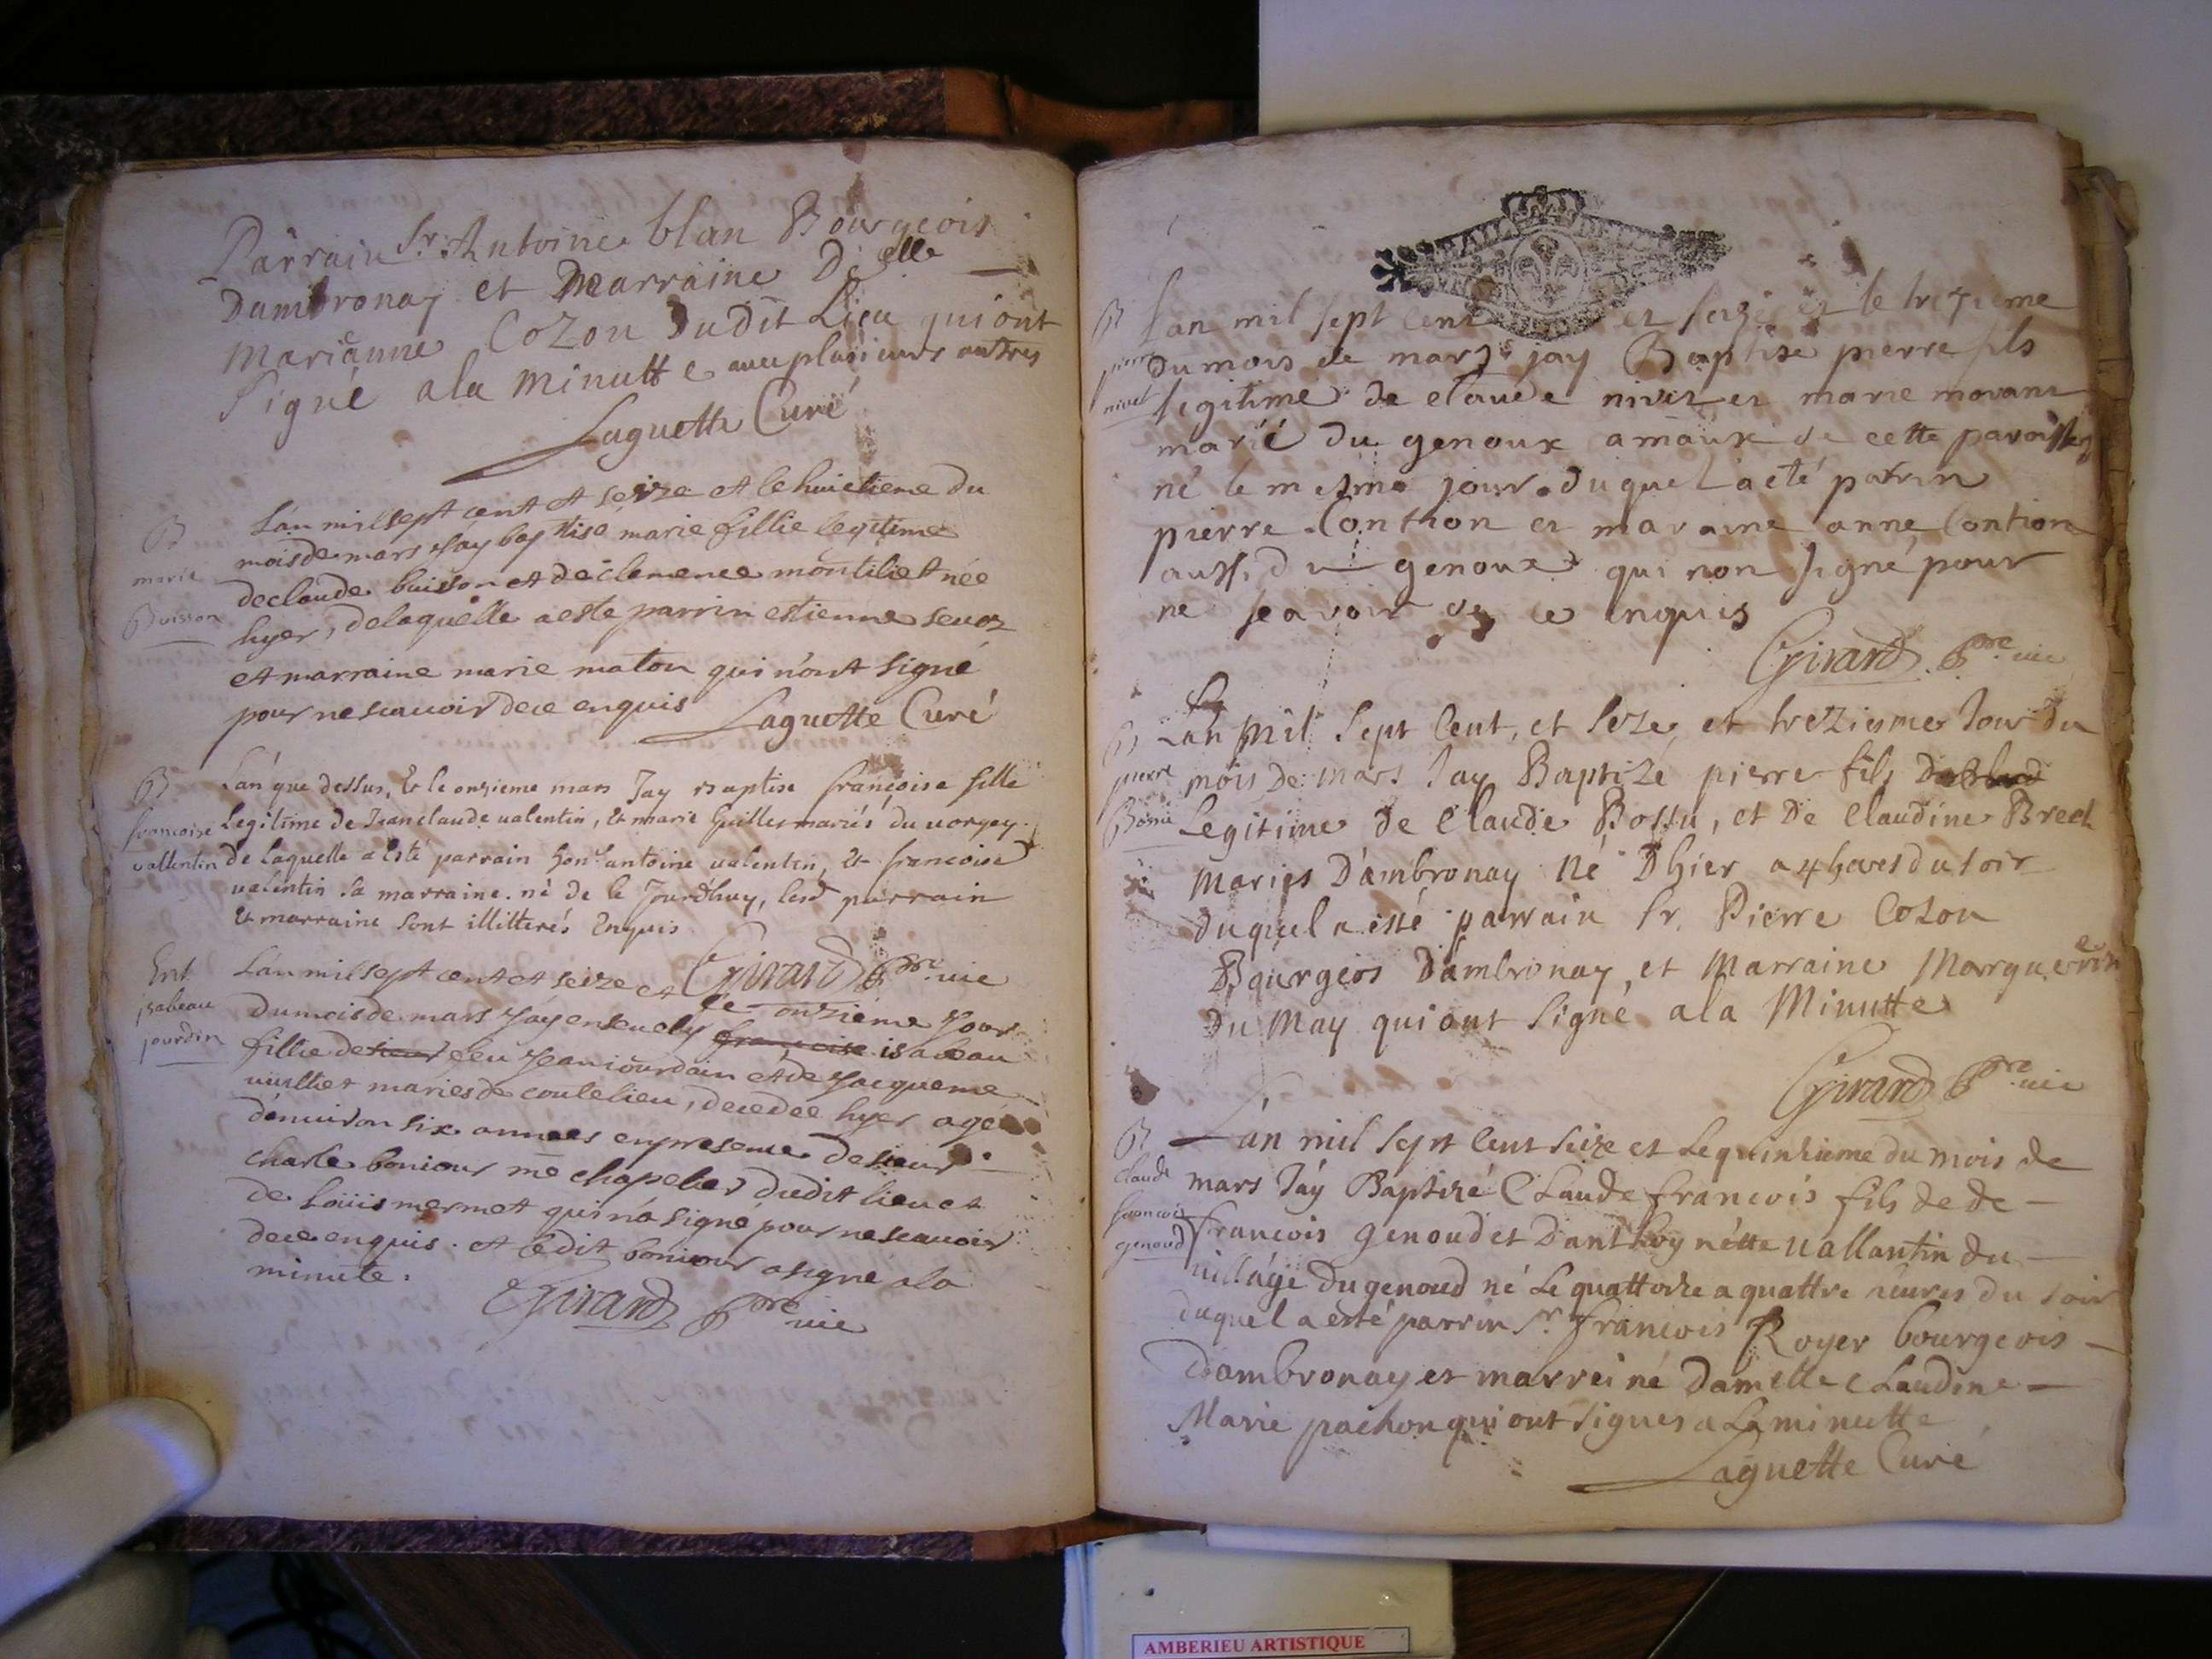 Parrain Sr. Antoine blan Bourgeois
Dambronay et Marraine Delle
Marianne Cozon dudit Lieu qui ont
Signé a la Minutte avec plusieurs autres
Laguette Curé
B
marie
Buisson
Lan mil sept cent et seize et le huictieme du
mois de mars jay baptisé marie fillie legitime
de claude buisson et de clemence montiliet née
hyer, de laquelle a este parrin estienne
et marraine marie maton qui n'ont signé
pour ne scauoir de ce enquis Laguette Curé
B
francoise
vallentin
Lan que dessus, & le onzieme mars Jay Baptise françoise fille
Legitime de Jean claude ualentin, & marie Guillet mariés du uorgey
de laquelle a esté parrain hon antoine ualentin, & francoise
valentin sa marraine. né de le Jourdhuy, lesd parrain
& marraine sont illitterés Enquis
Girard pre vic
Ent
isabeau
jourdin
Lan mil sept cent et seize et le onzieme Jour
du mois de mars Jay enseuely francoise isabeau
fillie de feu Jean iourdain et de Jacqueme
uuilliet mariés de coutelieu, decedee hyer agé
denuiron six annees en presence de sieur
charle boniour me chapelier dudit lieu et
de Loüis mermet qui n'a signé pour ne scauoir
de ce enquis. et ledit boniour a signe a la
minute.
Girard pre vic
B
pierre
nivet
Lan mil sept cent et seize et le treizieme
du mois de mars jay Baptise pierre fils
legitime de claude nivet et marie morant
marié du genoux amaux de cette paroisse
né le mesme jour duquel a eté parrin
pierre Contion et maraine anne Contion
aussi du genoux qui non signé pour
ne seavoir de ce enquis
Girard pre vic
B
pierre
Bossu
Lan Mil Sept Cent, et seze, et trezieme Jour du
mois de mars Jay Baptizé pierre fils
Legitime de Claude Bossu, et De Claudine Bret
Maries D'ambronay Né D'hier a 4 heures du soir
duquel a esté parrain Sr. Pierre Cozon
Bourgeois Dambronay, et Marraine Marguerite
Du May qui ont Signé a la Minutte
Girard pre vic
B
claude
francois
genoud
Lan mil sept cent seize et Le quinzieme du mois de
mars Jáy Baptizé Claude francois fils de de
francois genoud et Danthoynétte uallantin du
uillage du genoud né Le quattorze a quattre heures du soir
duquel a esté parrin Sr. francois Royer bourgeois
Dambronay et marreiné Damelle Claudine
Marie pachon qui ont signes a La minutte
Laguette Curé
AMBERIEU ARTISTIQUE